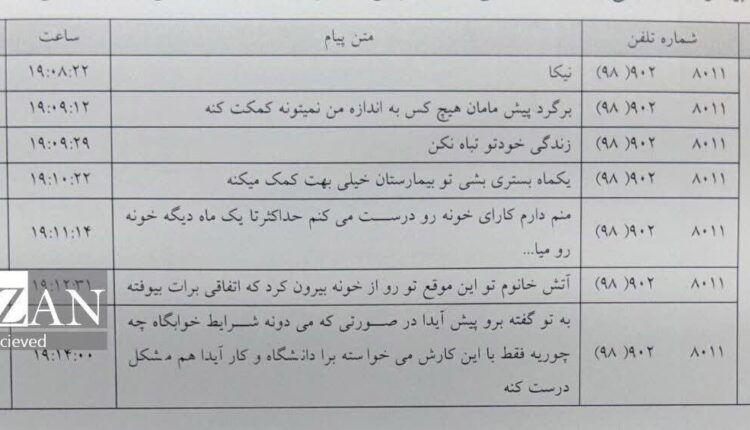 شماره تلفن متن پیام ساعت
۸۰۱۱ ۹۰۲( ۹۸) نیکا ۱۹:۰۸:۲۲
۸۰۱۱ ۹۰۲( ۹۸) برگرد پیش مامان هیچ کس به اندازه من نمیتونه کمکت کنه ۱۹:۰۹:۱۲
۸۰۱۱ ۹۰۲( ۹۸) زندگی خودتو تباه نکن ۱۹:۰۹:۲۹
۸۰۱۱ ۹۰۲( ۹۸) یکماه بستری بشی تو بیمارستان خیلی بهت کمک میکنه ۱۹:۱۰:۲۲
منم دارم کارای خونه رو درست می کنم حداکثرتا یک ماه دیگه خونه
۸۰۱۱ ۹۰۲( ۹۸) رو میا... ۱۹:۱۱:۱۴
۸۰۱۱ ۹۰۲( ۹۸) آتش خانوم تو این موقع تو رو از خونه بیرون کرد که اتفاقی برات بیوفته ۱۹:۱۲:۳۱
به تو گفته برو پیش آیدا در صورتی که می دونه شرایط خوابگاه چه
۸۰۱۱ ۹۰۲( ۹۸) جوریه فقط با این کارش می خواسته برا دانشگاه و کار آیدا هم مشکل ۱۹:۱۴:۰۰
درست کنه
ZAN
cieved